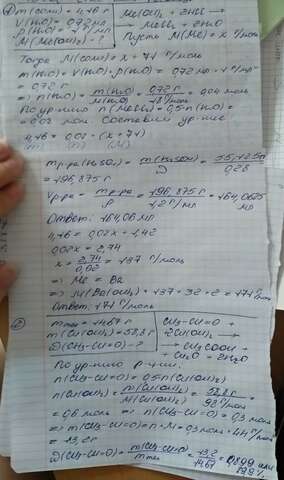 ① m(соли) = 4,16 г
V(H₂O) = 0,72 мл
ρ(H₂O) = 1 г/мл
M(Me(OH)₂) - ?
Me(OH)₂ + 2HCl →
MeCl₂ + 2H₂O
Пусть M(Me) = x г/моль
Тогда M(соли) = x + 71 г/моль
m(H₂O) = V(H₂O) · ρ(H₂O) = 0,72 мл · 1 г/мл =
= 0,72 г
=> n(H₂O) = m(H₂O)/M(H₂O) = 0,72 г/18 г/моль = 0,04 моль
По ур-нию n(MeCl₂) = 0,5n(H₂O) =
= 0,02 моль Составим ур-ние:
4,16 = 0,02 · (x + 71)
(m) (n) (M)
mр-ра(H₂SO₄) = m(H₂SO₄)/ω = 55,125г/0,28
= 196,875 г
Vр-ра = mр-ра/ρ = 196,875 г/1,2 г/мл = 164,0625 мл
Ответ: 164,06 мл
4,16 = 0,02x + 1,42
0,02x = 2,74
x = 2,74/0,02 = 137 г/моль
=> Me = Ba
=> M(Ba(OH)₂) = 137 + 32 + 2 = 171 г/моль
Ответ: 171 г/моль
② m = 14,67 г
m(Cu(OH)₂) = 58,8 г
ω(CH₃-CH=O) - ?
CH₃-CH=O +
2Cu(OH)₂ →
→ CH₃COOH +
+ Cu₂O + 2H₂O
По ур-нию р-ции:
n(CH₃-CH=O) = 0,5n(Cu(OH)₂)
n(Cu(OH)₂) = m(Cu(OH)₂)/M(Cu(OH)₂) = 58,8г/98 г/моль =
= 0,6 моль => n(CH₃-CH=O) = 0,3 моль
=> m(CH₃-CH=O) = n · M = 0,3 моль · 44 г/моль
= 13,2 г
ω(CH₃-CH=O) = m(CH₃-CH=O)/m = 13,2/14,67 = 0,899 или